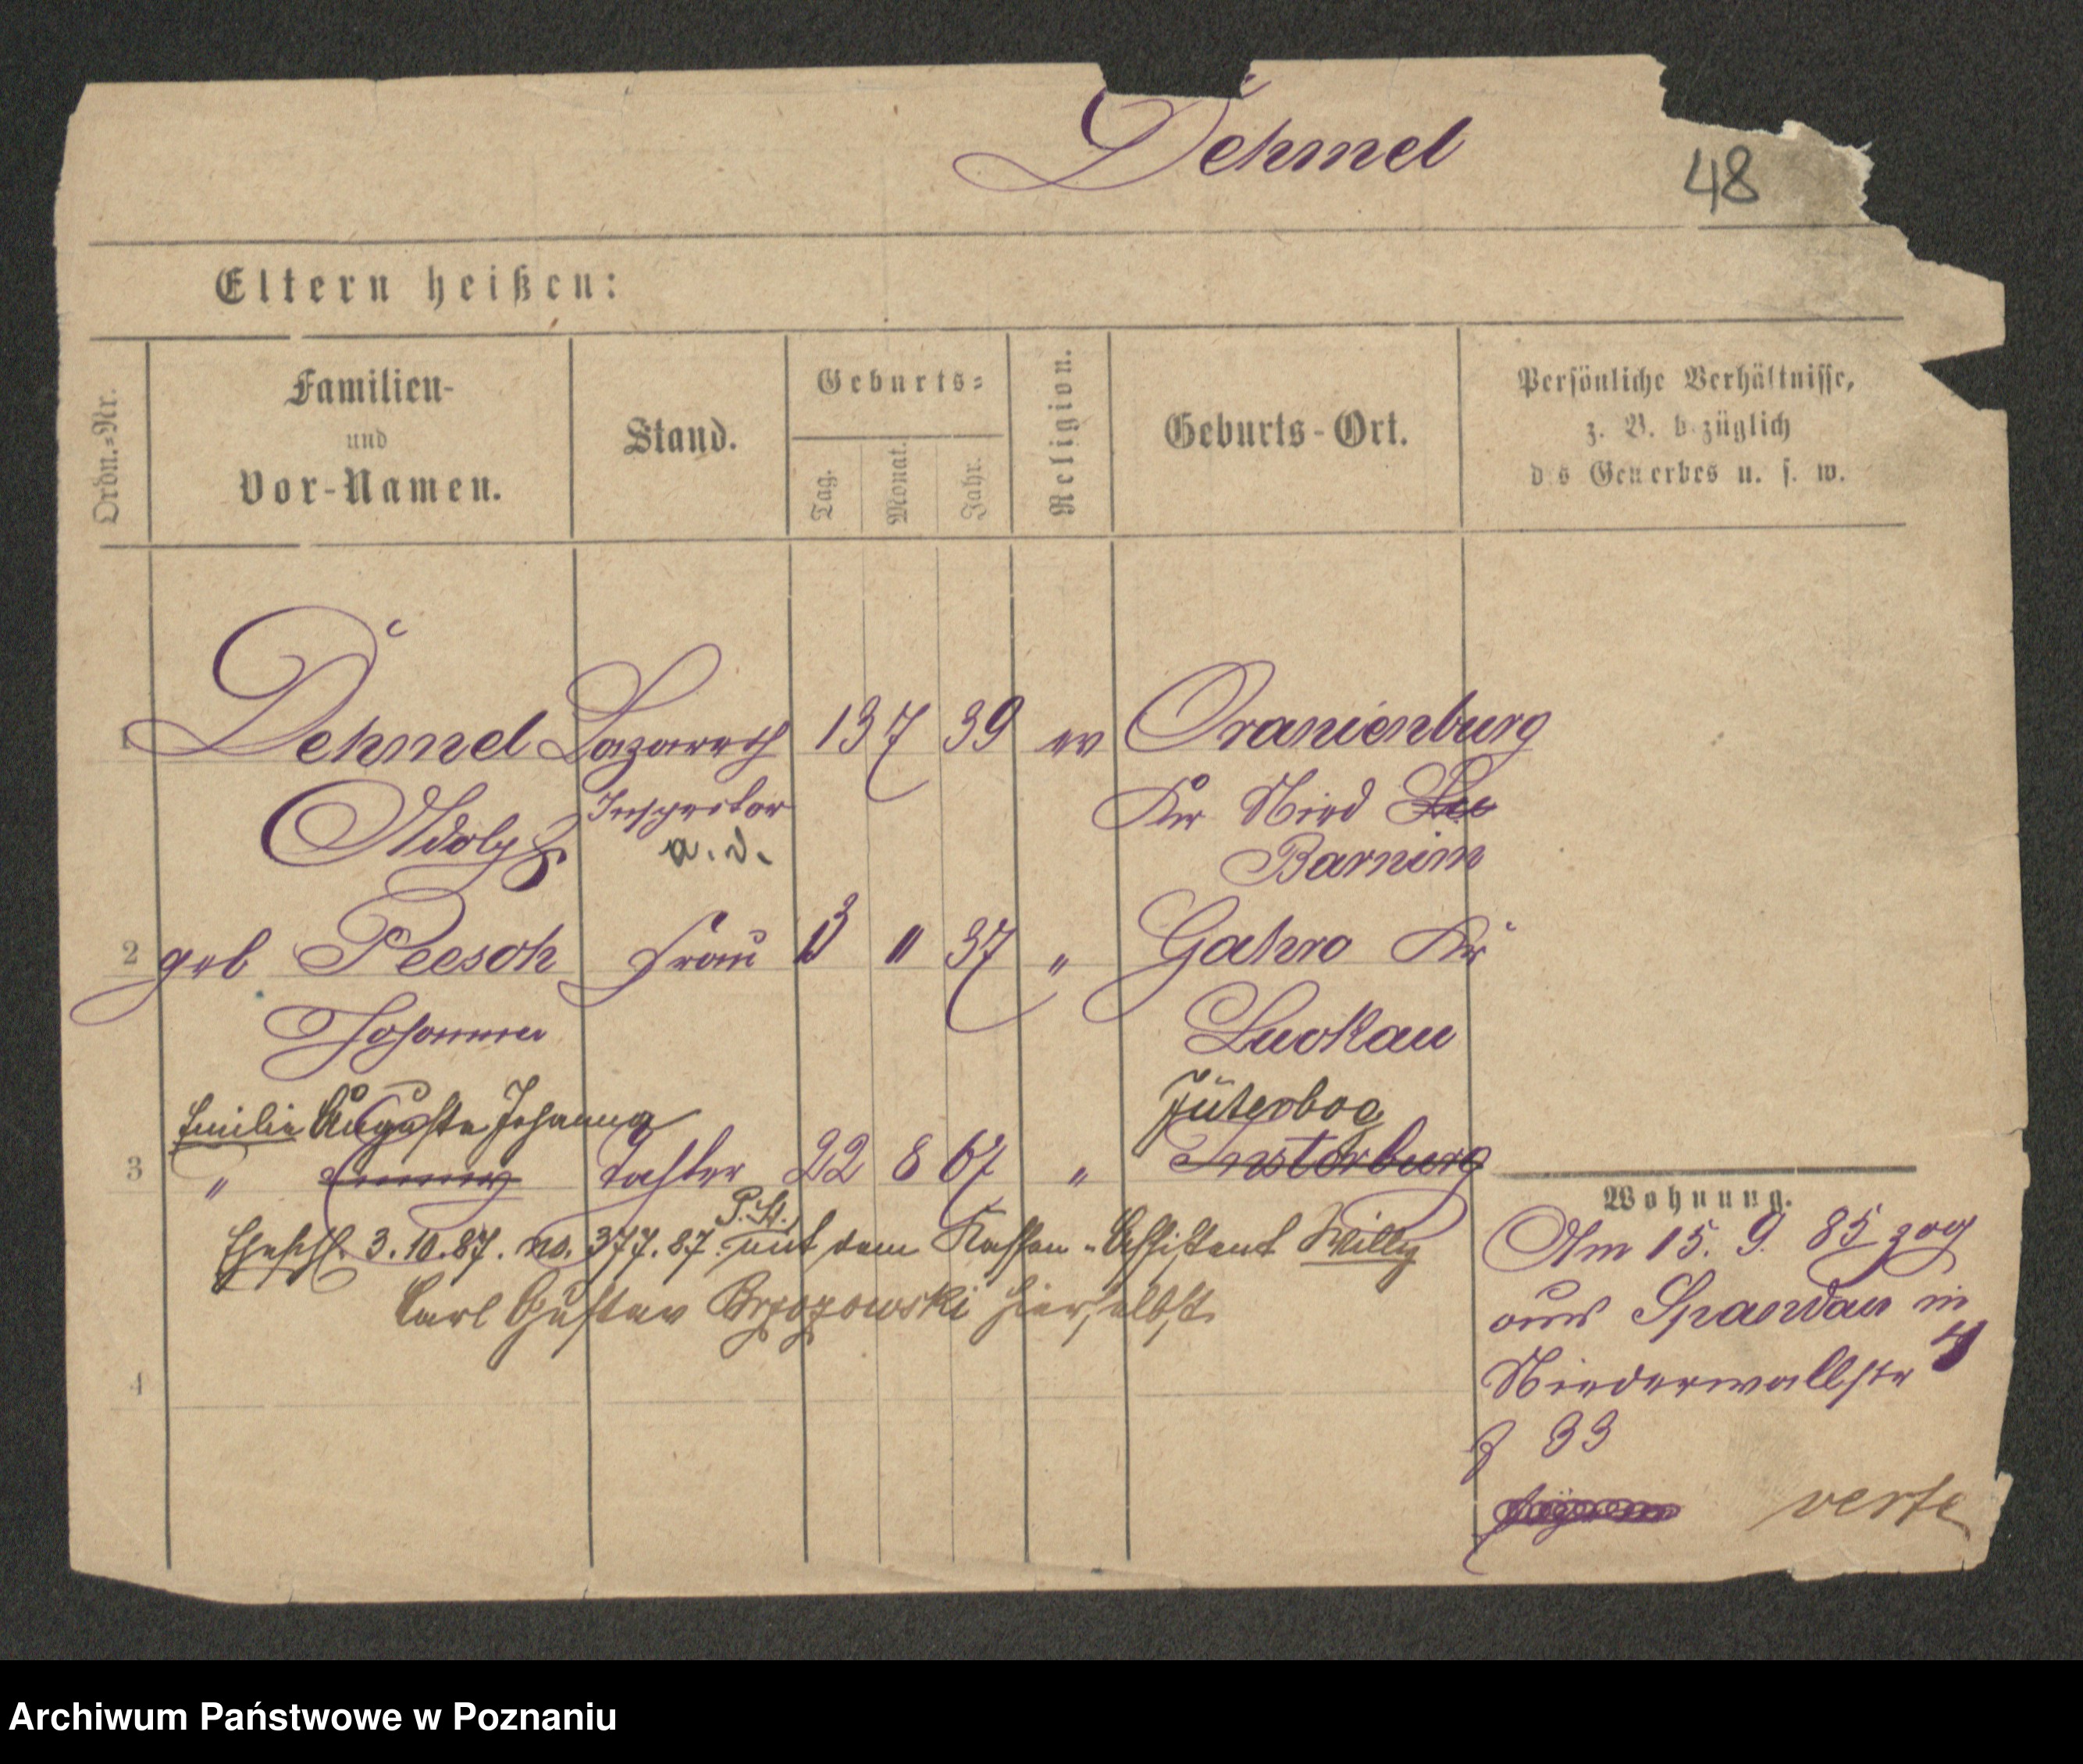 Dehmel
48
Eltern heißen:
Ordn.=Nr.
Familien-
und
Vor-Namen.
Stand.
Geburts=
Tag.
Monat.
Jahr.
Religion.
Geburts-Ort.
Persönliche Verhältnisse,
z. B. b züglich
d s Gewerbes u. s. w.
1 Dehmel Lazareth 13 7 39 ev Oranienburg
Adolph Inspector Kr Nied
a. D. Barnim
2 geb Peesch Frau 13 11 37 " Gahro Kr
Johanna Luckau
Emilie Auguste Johanna Jüterbog
3 " Emma Tochter 22 8 67 " Insterburg
Ehesch. 3.10.87. no. 377.87. P. St. mit dem Kassen-Assistent Willy
Carl Gustav Brzozowski hierselbst.
4
Wohnung.
Am 15. 9. 85 zog
aus Spandau in
Niederwallstr 4
33
verte
Archiwum Państwowe w Poznaniu